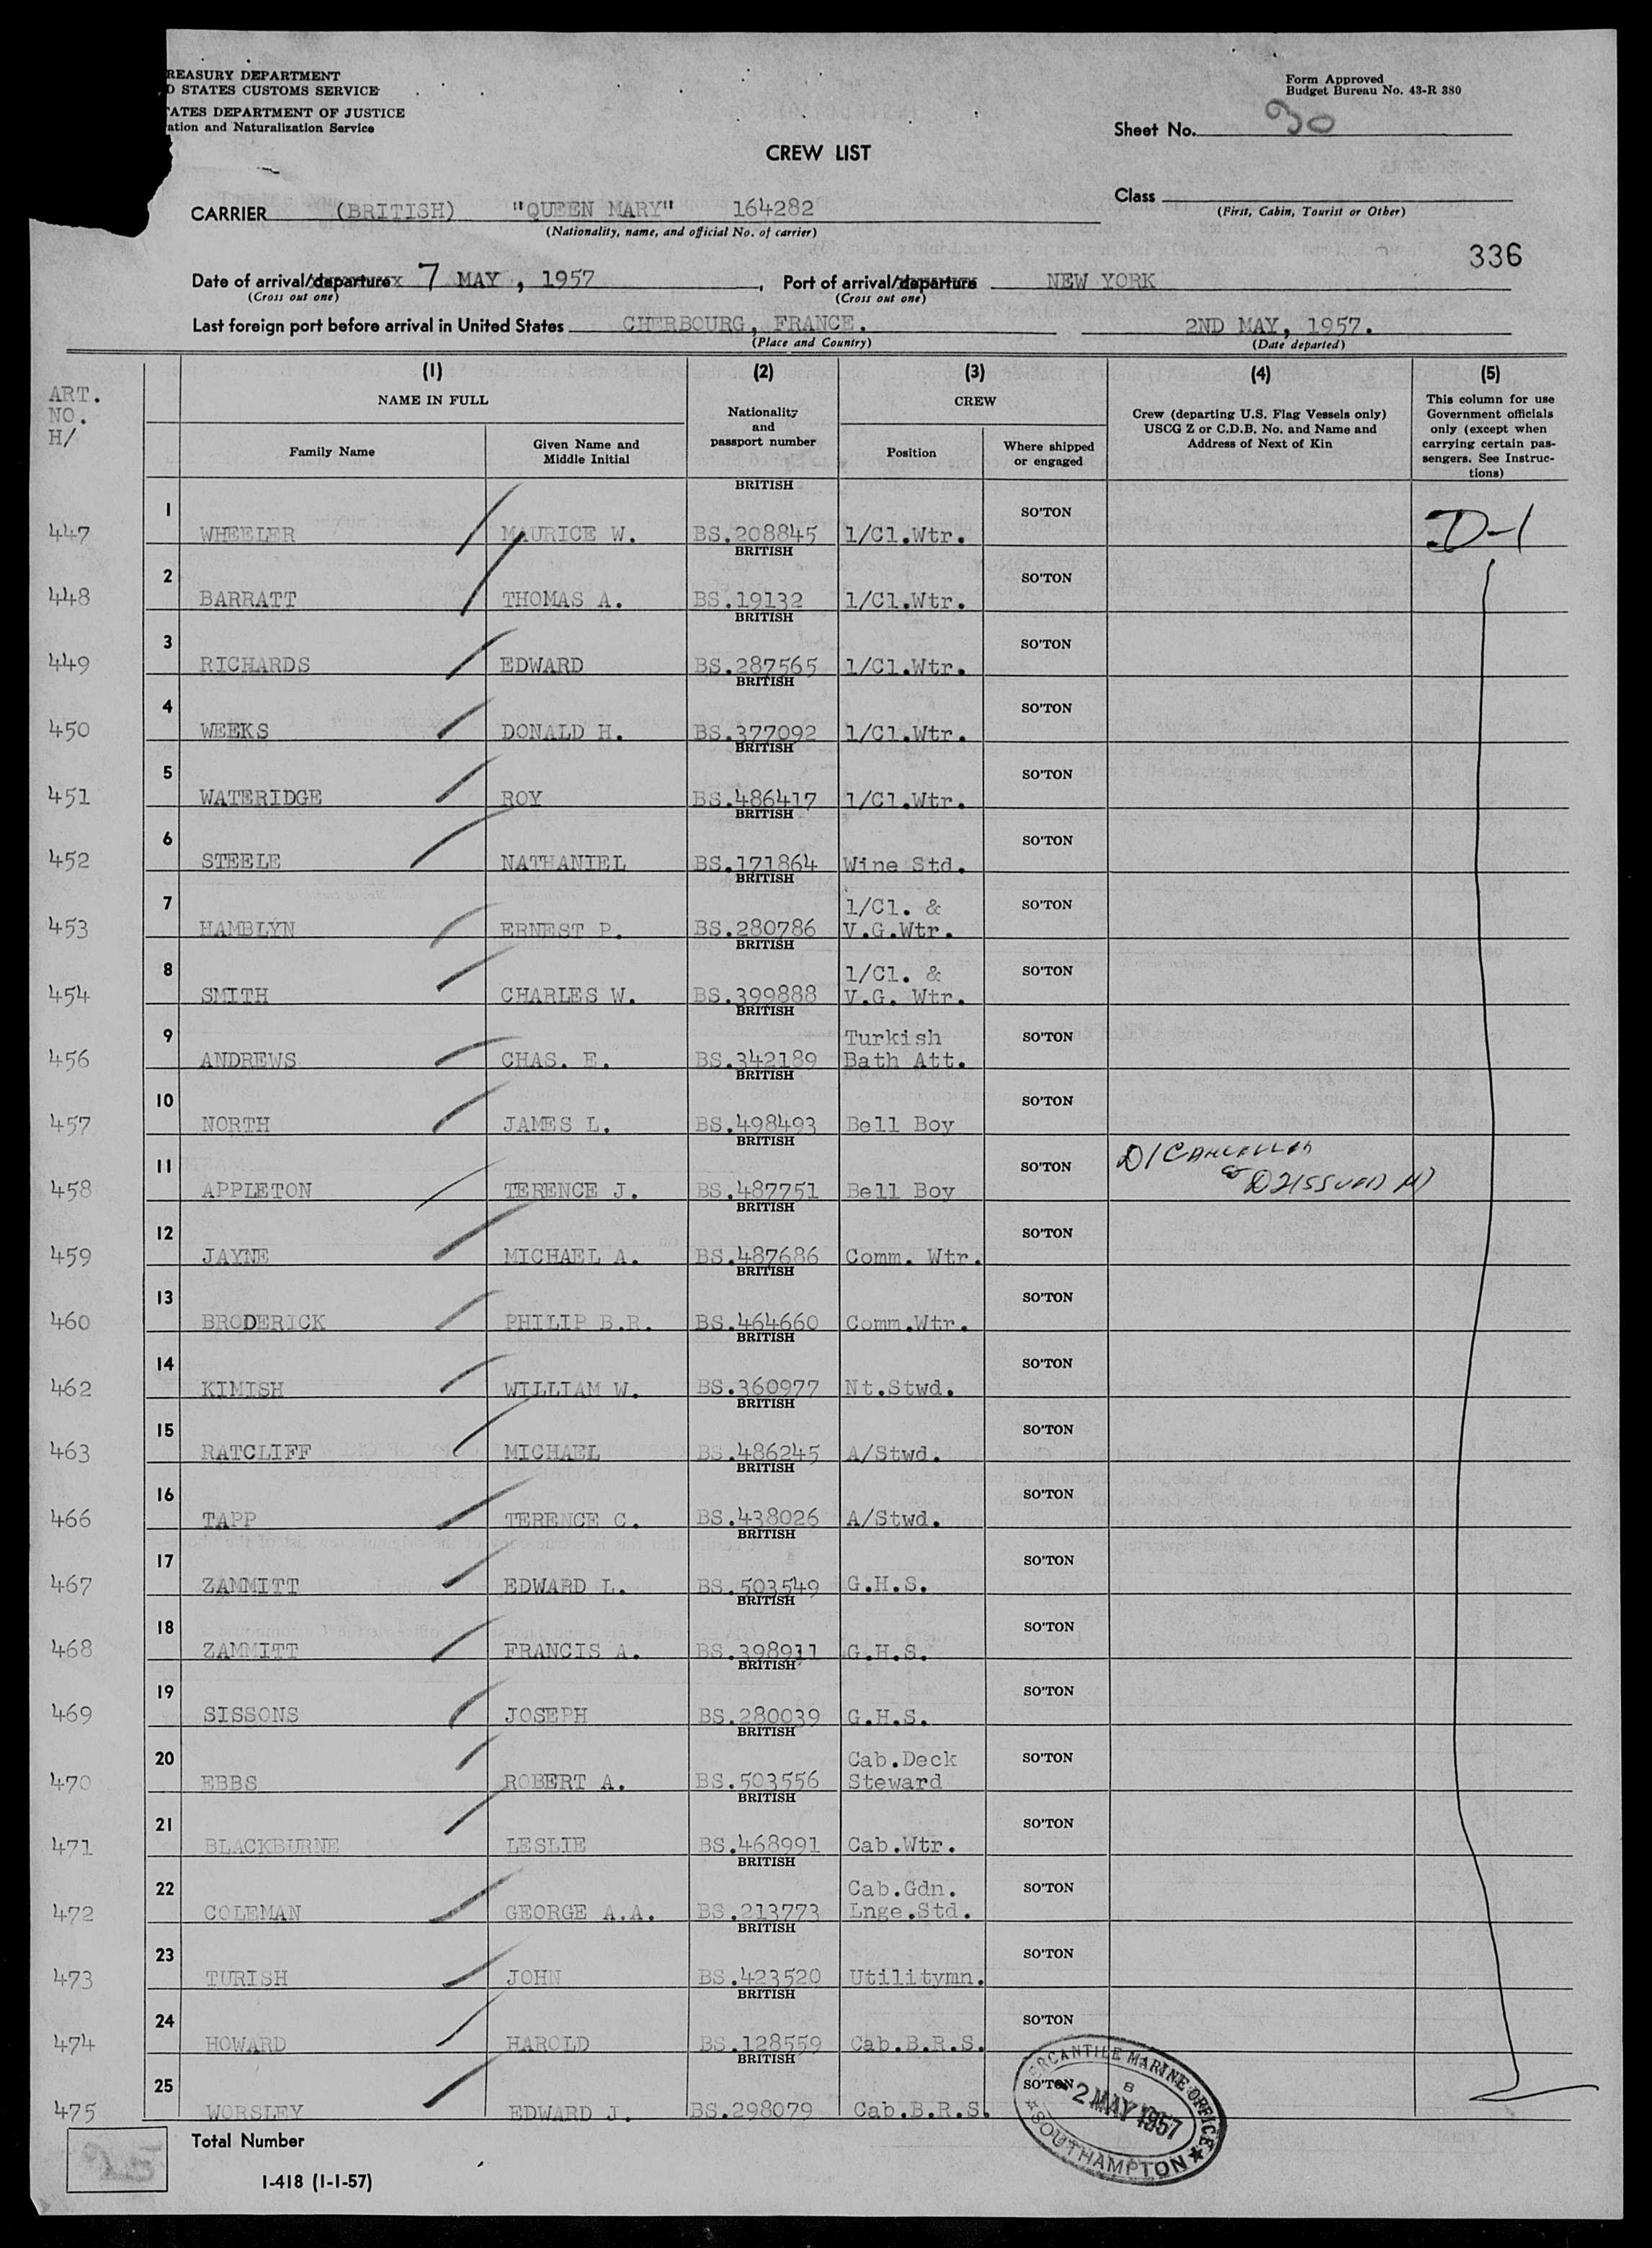 REASURY DEPARTMENT
D STATES CUSTOMS SERVICE
TATES DEPARTMENT OF JUSTICE
ation and Naturalization Service
Form Approved
Budget Bureau No. 43-R 380
Sheet No. 30
CREW LIST
Class
(First, Cabin, Tourist or Other)
CARRIER (BRITISH) "QUEEN MARY" 164282
(Nationality, name, and official No. of carrier)
336
Date of arrival/departure 7 MAY, 1957, Port of arrival/departure NEW YORK
(Cross out one) (Cross out one)
Last foreign port before arrival in United States CHERBOURG, FRANCE. 2ND MAY, 1957.
(Place and Country) (Date departed)
ART.
NO.
H/
(1) (2) (3) (4) (5)
NAME IN FULL
Family Name
Given Name and
Middle Initial
Nationality
and
passport number
CREW
Position
Where shipped
or engaged
Crew (departing U.S. Flag Vessels only)
USCG Z or C.D.B. No. and Name and
Address of Next of Kin
This column for use
Government officials
only (except when
carrying certain pas-
sengers. See Instruc-
tions)
BRITISH
447 1 WHEELER MAURICE W. BS.208845 1/Cl.Wtr. SO'TON D-1
BRITISH
448 2 BARRATT THOMAS A. BS.19132 1/Cl.Wtr. SO'TON
BRITISH
449 3 RICHARDS EDWARD BS.287565 1/Cl.Wtr. SO'TON
BRITISH
450 4 WEEKS DONALD H. BS.377092 1/Cl.Wtr. SO'TON
BRITISH
451 5 WATERIDGE ROY BS.486417 1/Cl.Wtr. SO'TON
BRITISH
452 6 STEELE NATHANIEL BS.171864 Wine Std. SO'TON
BRITISH
1/Cl. &
453 7 HAMBLYN ERNEST P. BS.280786 V.G.Wtr. SO'TON
BRITISH
1/Cl. &
454 8 SMITH CHARLES W. BS.399888 V.G. Wtr. SO'TON
BRITISH
Turkish
456 9 ANDREWS CHAS. E. BS.342189 Bath Att. SO'TON
BRITISH
457 10 NORTH JAMES L. BS.498493 Bell Boy SO'TON
BRITISH
D/CANCELLED
458 11 APPLETON TERENCE J. BS.487751 Bell Boy SO'TON & D2 ISSUED
BRITISH
459 12 JAYNE MICHAEL A. BS.487686 Comm. Wtr. SO'TON
BRITISH
460 13 BRODERICK PHILIP B.R. BS.464660 Comm.Wtr. SO'TON
BRITISH
462 14 KIMISH WILLIAM W. BS.360977 Nt.Stwd. SO'TON
BRITISH
463 15 RATCLIFF MICHAEL BS.486245 A/Stwd. SO'TON
BRITISH
466 16 TAPP TERENCE C. BS.438026 A/Stwd. SO'TON
BRITISH
467 17 ZAMMITT EDWARD L. BS.503549 G.H.S. SO'TON
BRITISH
468 18 ZAMMITT FRANCIS A. BS.398911 G.H.S. SO'TON
BRITISH
469 19 SISSONS JOSEPH BS.280039 G.H.S. SO'TON
BRITISH
Cab.Deck
470 20 EBBS ROBERT A. BS.503556 Steward SO'TON
BRITISH
471 21 BLACKBURNE LESLIE BS.468991 Cab.Wtr. SO'TON
BRITISH
Cab.Gdn.
472 22 COLEMAN GEORGE A.A. BS.213773 Lnge.Std. SO'TON
BRITISH
473 23 TURISH JOHN BS.423520 Utilitymn. SO'TON
BRITISH
474 24 HOWARD HAROLD BS.128559 Cab.B.R.S. SO'TON
BRITISH
475 25 WORSLEY EDWARD J. BS.298079 Cab.B.R.S. SO'TON
ERCANTILE MARINE OFFICE
8
2 MAY 1957
SOUTHAMPTON
Total Number
I-418 (1-1-57)